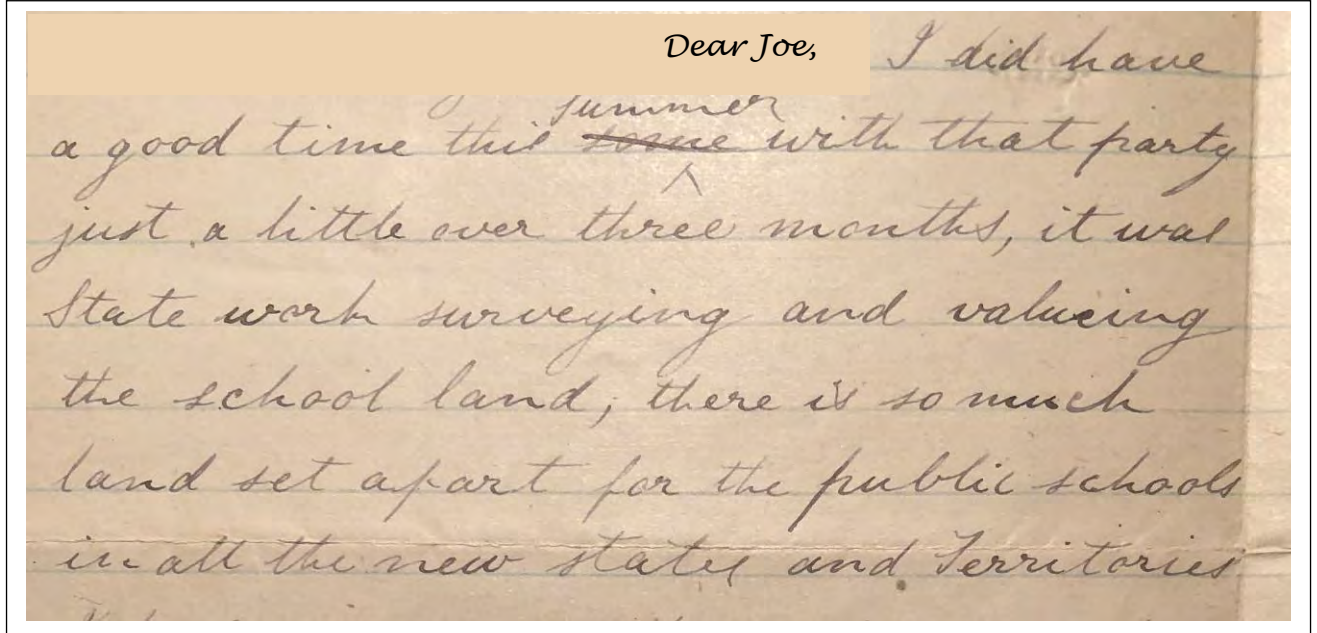 Dear Joe, I did have
summer
a good time this some with that party
just a little over three months, it was
State work surveying and valueing
the school land, there is so much
land set apart for the public schools
in all the new states and Territories